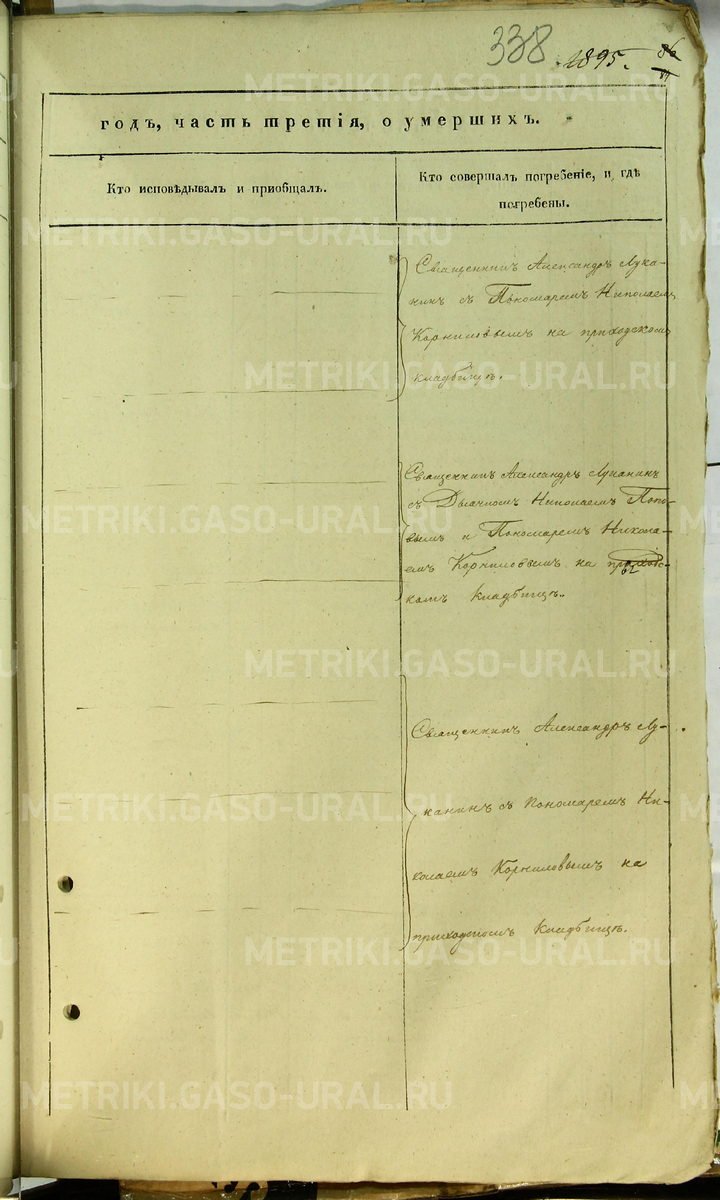 338
1895.
годъ, часть третія, о умершихъ.
Кто исповѣдывалъ и пріобщалъ.
Кто совершалъ погребеніе, и гдѣ
погребены.
Священникъ Александръ Лука-
нинъ съ Пономаремъ Николаемъ
Корниловымъ на приходскомъ
кладбищѣ.
Священникъ Александръ Луканинъ
съ Дьячкомъ Николаемъ Попо-
вымъ и Пономаремъ Никола-
емъ Корниловымъ на приходс-
комъ кладбищѣ.
Священникъ Александръ Лу-
канинъ съ Пономаремъ Ни-
колаемъ Корниловымъ на
приходскомъ кладбищѣ.
METRIKI.GASO-URAL.RU
METRIKI.GASO-URAL.RU
METRIKI.GASO-URAL.RU
METRIKI.GASO-URAL.RU
METRIKI.GASO-URAL.RU
METRIKI.GASO-URAL.RU
METRIKI.GASO-URAL.RU
METRIKI.GASO-URAL.RU